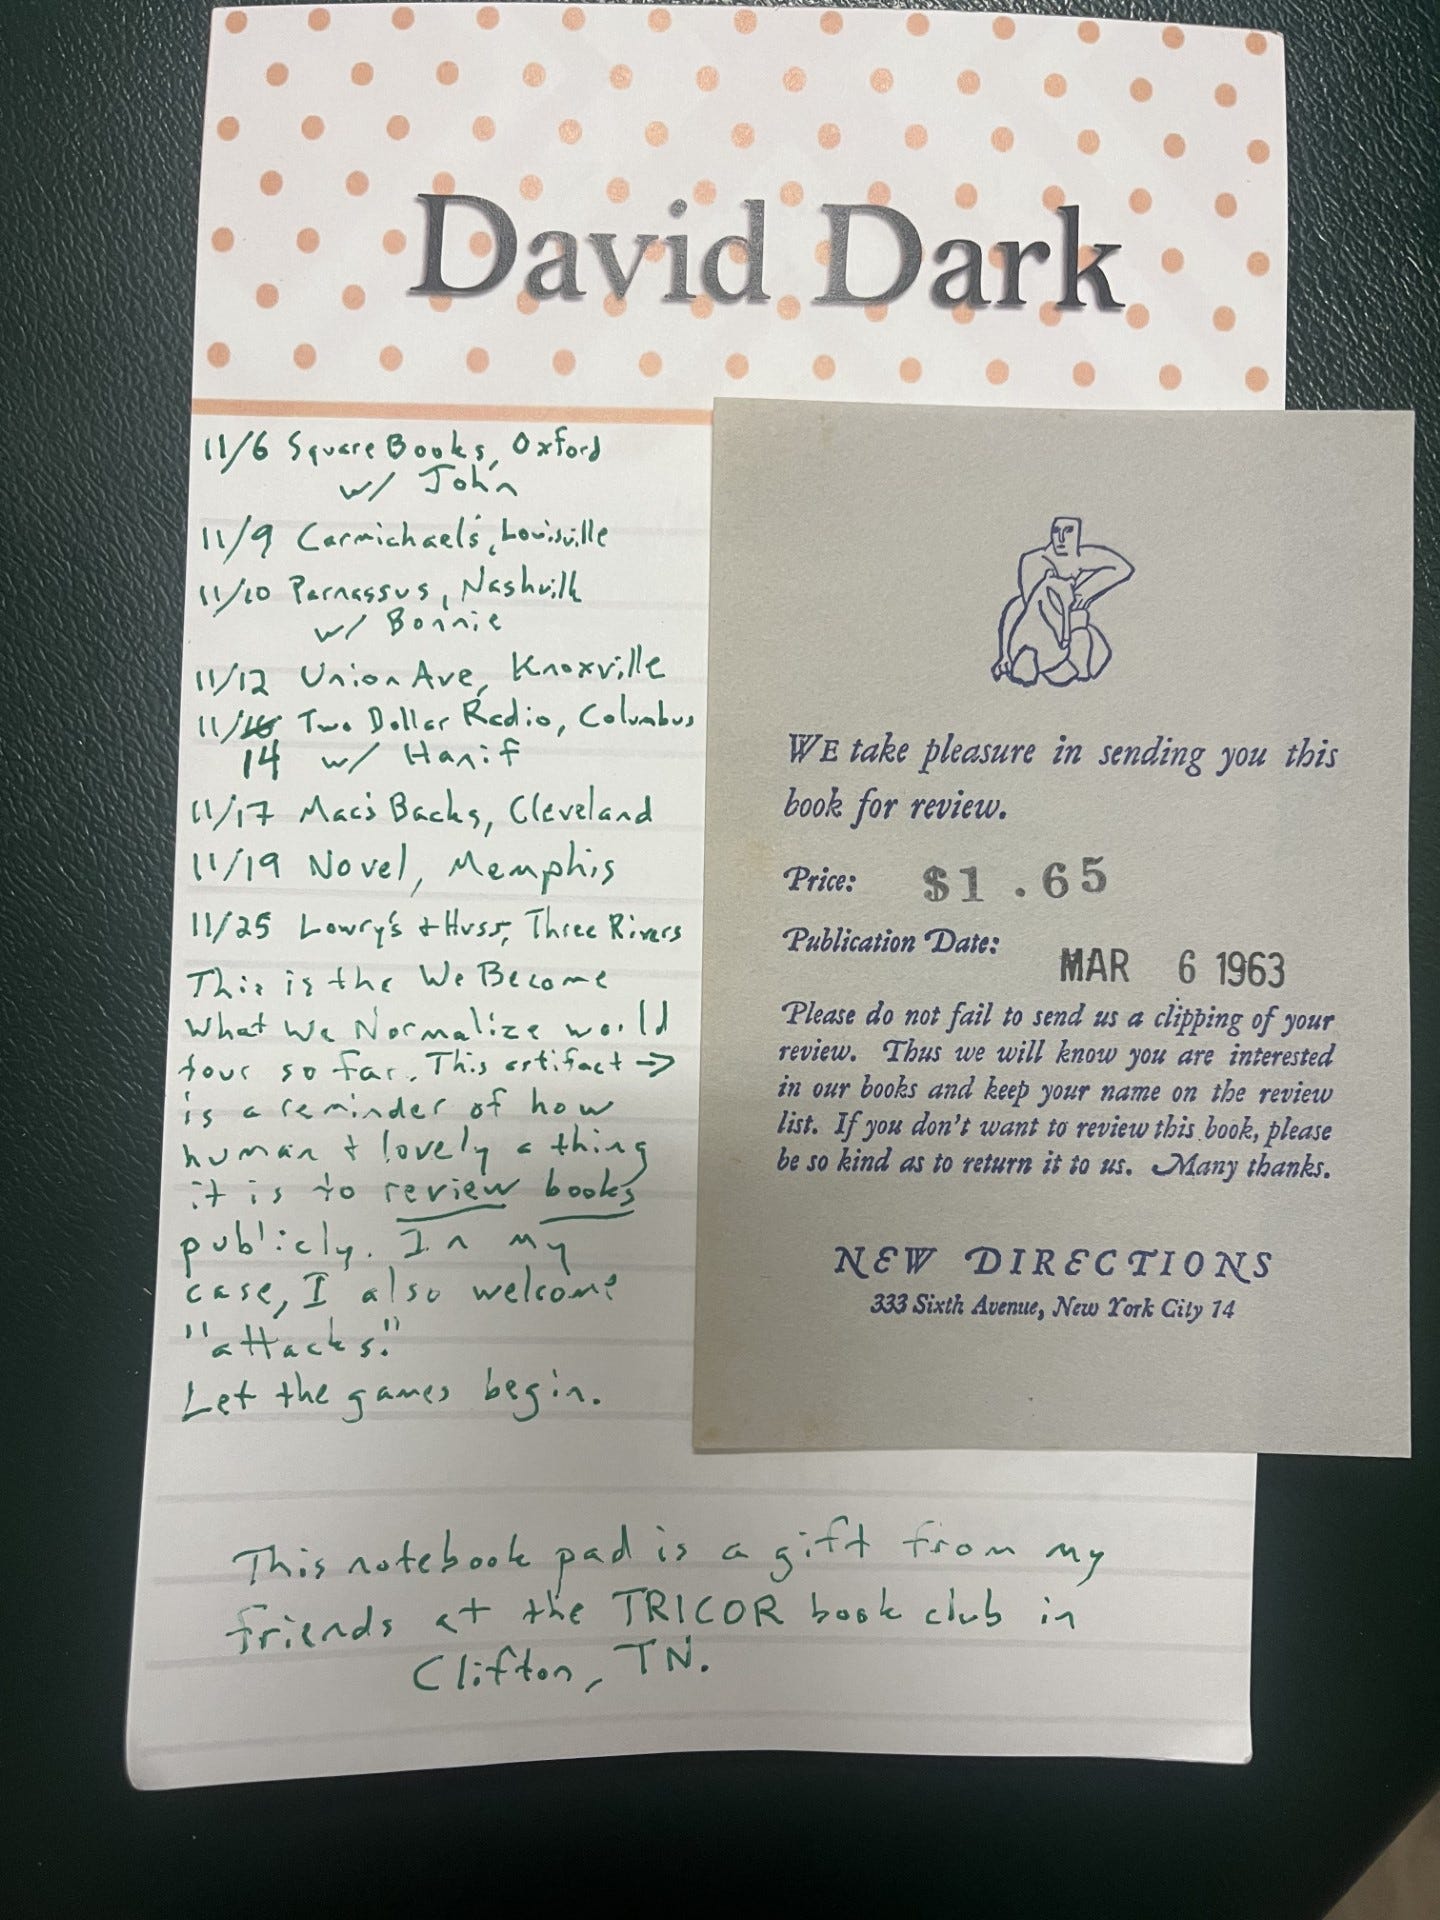 David Dark
11/6 Square Books, Oxford
w/ John
11/9 Carmichael's, Louisville
11/10 Parnassus, Nashville
w/ Bonnie
11/12 Union Ave, Knoxville
11/ Two Dollar Radio, Columbus
14 w/ Hanif
11/17 Mac's Backs, Cleveland
11/19 Novel, Memphis
11/25 Lowry's + Huss, Three Rivers
This is the We Become
What We Normalize world
tour so far. This artifact →
is a reminder of how
human + lovely a thing
it is to review books
publicly. In my
case, I also welcome
"attacks."
Let the games begin.
This notebook pad is a gift from my
friends at the TRICOR book club in
Clifton, TN.
WE take pleasure in sending you this
book for review.
Price: $1.65
Publication Date: MAR 6 1963
Please do not fail to send us a clipping of your
review. Thus we will know you are interested
in our books and keep your name on the review
list. If you don't want to review this book, please
be so kind as to return it to us. Many thanks.
NEW DIRECTIONS
333 Sixth Avenue, New York City 14